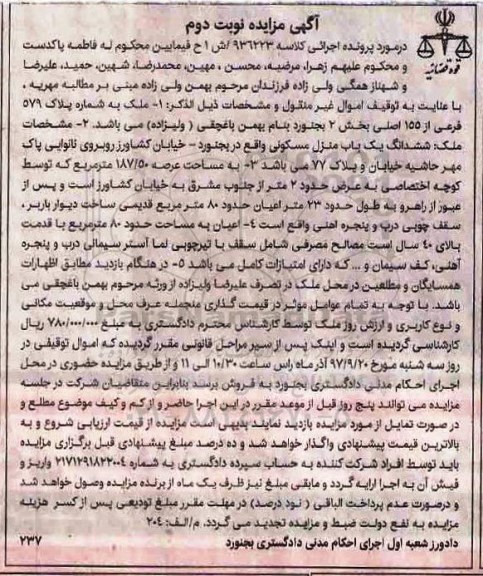 آگهی مزایده نوبت دوم
قوه قضائیه
درمورد پرونده اجرائی کلاسه ۹۳۶۲۲۳ /ش ۱ ح فیمابین محکوم له فاطمه پاکدست
و محکوم علیهم زهرا، مرضیه، محسن ، مهین، محمدرضا، شهین، حمید، علیرضا
و شهناز همگی ولی زاده فرزندان مرحوم بهمن ولی زاده مبنی بر مطالبه مهریه ،
با عنایت به توقیف اموال غیر منقول و مشخصات ذیل الذکر: ۱- ملک به شماره پلاک ۵۷۹
فرعی از ۱۵۵ اصلی بخش ۲ بجنورد بنام بهمن باغچقی ( ولیزاده) می باشد. ۲- مشخصات
ملک: ششدانگ یک باب منزل مسکونی واقع در بجنورد – خیابان کشاورز روبروی نانوایی پاک
مهر حاشیه خیابان و پلاک ۷۷ می باشد ۳- به مساحت عرصه ۱۸۷/۵۰ مترمربع که توسط
کوچه اختصاصی به عرض حدود ۲ متر از جنوب مشرق به خیابان کشاورز است و پس از
عبور از راهرو به طول حدود ۲۳ متر اعیان حدود ۸۰ متر مربع قدیمی ساخت دیوار باربر ،
سقف چوبی درب و پنجره آهنی واقع است ۴- اعیان به مساحت حدود ۸۰ مترمربع با قدمت
بالای ۴۰ سال است مصالح مصرفی شامل سقف با تیرچوبی نما آستر سیمانی درب و پنجره
آهنی، کف سیمان و ... که دارای امتیازات کامل می باشد ۵- در هنگام بازدید مطابق اظهارات
همسایگان و مطلعین در محل ملک در تصرف علیرضا ولیزاده از ورثه مرحوم بهمن باغچقی می
باشد. با توجه به تمام عوامل موثر در قیمت گذاری منجمله عرف محل و موقعیت مکانی
و نوع کاربری و ارزش روز ملک توسط کارشناس محترم دادگستری به مبلغ ۷۸۰/۰۰۰/۰۰۰ ریال
کارشناسی گردیده است و اینک پس از سیر مراحل قانونی مقرر گردیده که اموال توقیفی در
روز سه شنبه مورخ ۹۷/۹/۲۰ آذر ماه راس ساعت ۱۰/۳۰ الی ۱۱ و از طریق مزایده حضوری در محل
اجرای احکام مدنی دادگستری بجنورد به فروش برسد بنابراین متقاضیان شرکت در جلسه
مزایده می توانند پنج روز قبل از موعد مقرر در این اجرا حاضر و از کم و کیف موضوع مطلع و
در صورت تمایل از مورد مزایده بازدید نمایند بدیهی است مزایده از قیمت ارزیابی شروع و به
بالاترین قیمت پیشنهادی واگذار خواهد شد و ده درصد مبلغ پیشنهادی قبل برگزاری مزایده
باید توسط افراد شرکت کننده به حساب سپرده دادگستری به شماره ۲۱۷۱۲۹۱۸۲۲۰۰۴ واریز و
فیش آن به اجرا ارایه گردد و مابقی مبلغ نیز ظرف یک ماه از برنده مزایده وصول خواهد شد
و درصورت عدم پرداخت الباقی ( نود درصد) در مهلت مقرر مبلغ تودیعی پس از کسر هزینه
مزایده به نفع دولت ضبط و مزایده تجدید می گردد. م/الف: ۲۰۴
دادورز شعبه اول اجرای احکام مدنی دادگستری بجنورد ۲۳۷